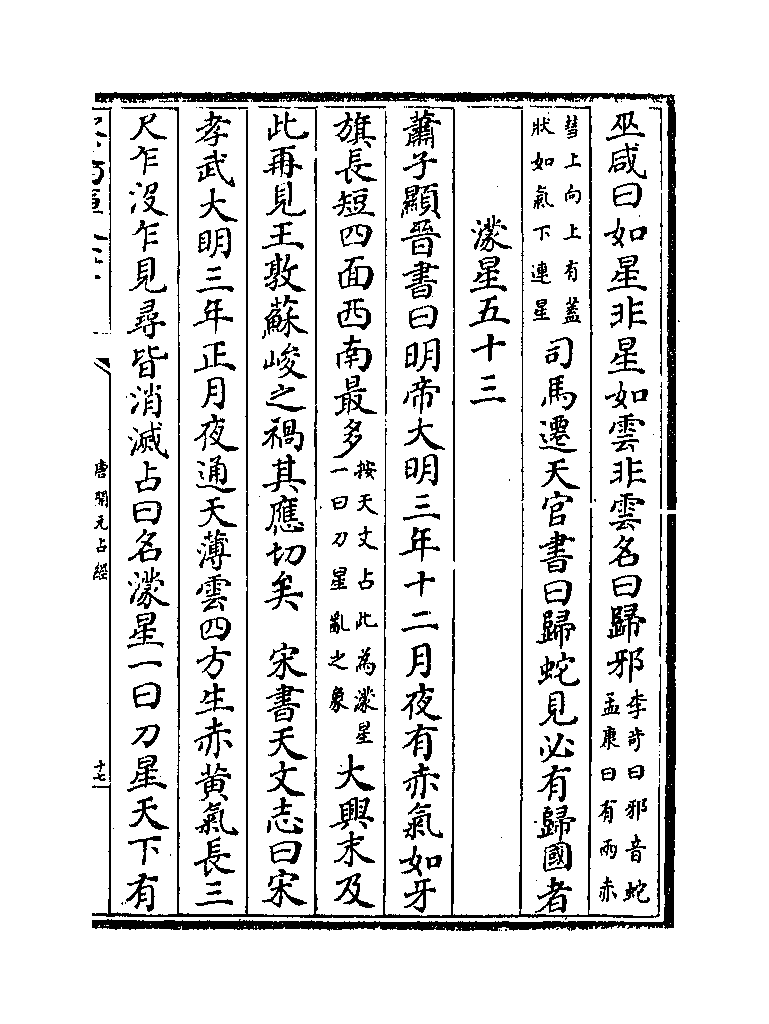 巫咸曰如星非星如雲非雲名曰歸邪李奇曰邪音蛇孟康曰有兩赤
彗上向上有蓋狀如氣下連星司馬遷天官書曰歸蛇見必有歸國者
濛星五十三
蕭子顯晉書曰明帝大明三年十二月夜有赤氣如牙
旗長短四面西南最多按天文占此為濛星一曰刀星亂之象大興末及
此再見王敦蘇峻之禍其應切矣　宋書天文志曰宋
孝武大明三年正月夜通天薄雲四方生赤黃氣長三
尺乍沒乍見尋皆消滅占曰名濛星一曰刀星天下有
唐開元占經
十七